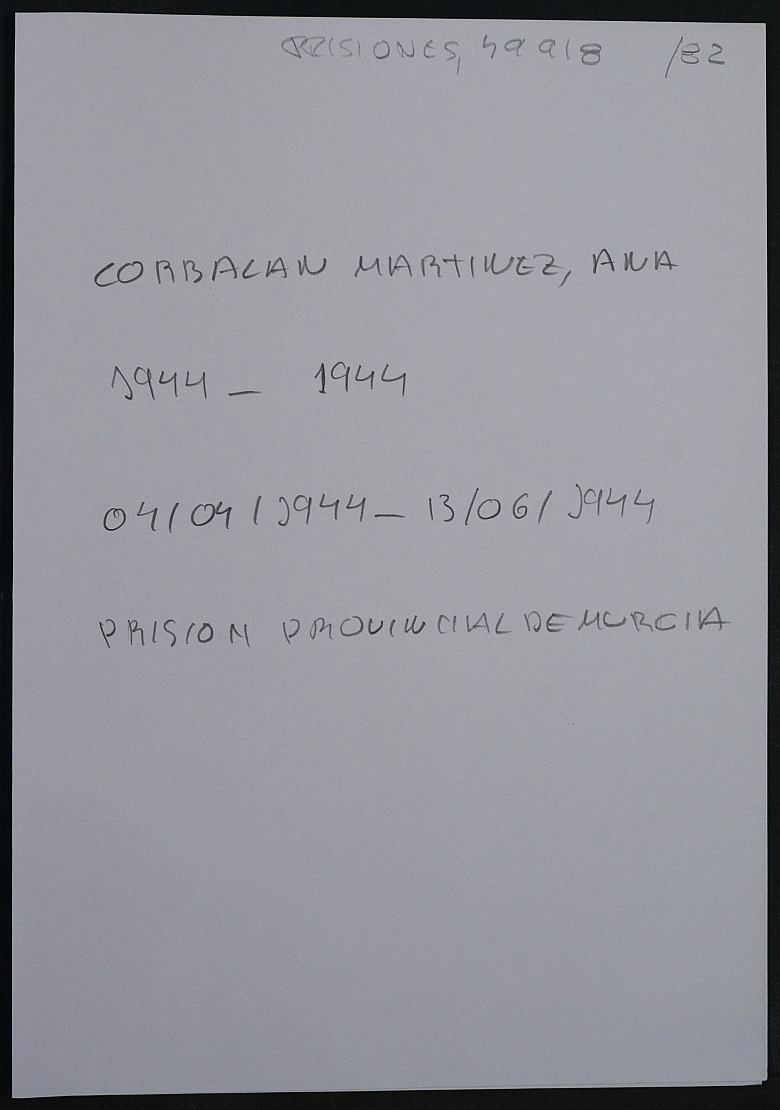 PRISIONES, 49918 /82
CORBALAN MARTINEZ, ANA
1944 - 1944
04/04/1944 - 13/06/1944
PRISION PROVINCIAL DE MURCIA